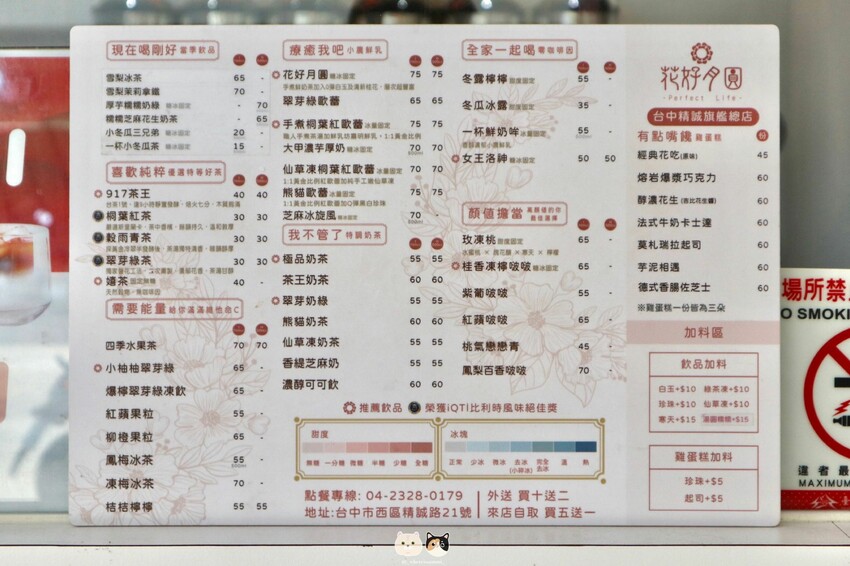 現在喝剛好 當季飲品
雪梨冰茶 65 -
雪梨茉莉拿鐵 70 -
厚芋糯糯奶綠 糖冰固定 - 70
糯糯芝麻花生奶茶 - 65
小冬瓜三兄弟 糖冰固定 20 -
一杯小冬瓜茶 糖冰固定 15 -
喜歡純粹 優選特等好茶
917茶王 40 40
桐葉紅茶 30 30
穀雨青茶 30 30
翠芽綠茶 30 30
嬉茶 固定無糖 45 -
需要能量 給你滿滿維他命C
四季水果茶 70 70
小柚柚翠芽綠 65 -
爆檸翠芽綠凍飲 65 -
紅蘋果粒 55 -
柳橙果粒 65 -
鳳梅冰茶 55 -
凍梅冰茶 70 -
桔桔檸檬 55 55
療癒我吧 小農鮮乳
花好月圓 糖冰固定 75 75
翠芽綠歐蕾 65 65
手煮桐葉紅歐蕾 冰量固定 75 75
大甲濃芋厚奶 糖冰固定 70 70
仙草凍桐葉紅歐蕾 冰量固定 70 70
熊貓歐蕾 冰量固定 70 70
芝麻冰旋風 糖冰固定 70 -
我不管了 特調奶茶
極品奶茶 55 55
茶王奶茶 60 60
翠芽奶綠 55 55
熊貓奶茶 60 60
仙草凍奶茶 55 55
香緹芝麻奶 55 55
濃醇可可飲 60 60
全家一起喝 零咖啡因
冬露檸檸 甜度固定 55 -
冬瓜冰露 甜度固定 35 -
一杯鮮奶哞 冰量固定 55 -
女王洛神 糖冰固定 50 50
顏值擔當
玫凍桃 甜度固定 65 -
桂香凍檸啵啵 糖冰固定 65 -
紫葡啵啵 65 -
紅蘋啵啵 65 -
桃氣戀戀青 45 -
鳳梨百香啵啵 70 -
推薦飲品 榮獲iQTi比利時風味絕佳獎
甜度
無糖 一分糖 微糖 半糖 少糖 全糖
冰塊
正常 少冰 微冰 去冰(小碎冰) 完全去冰 溫 熱
點餐專線: 04-2328-0179
地址:台中市西區精誠路21號
外送 買十送二
來店自取 買五送一
花好月圓
- Perfect Life -
台中精誠旗艦總店
有點嘴饞 雞蛋糕 份
經典花吃(原味) 45
熔岩爆漿巧克力 60
醇濃花生(吉比花生醬) 60
法式牛奶卡士達 60
莫札瑞拉起司 60
芋泥相遇 60
德式香腸佐芝士 60
※雞蛋糕一份皆為三朵
加料區
飲品加料
白玉+$10 綠茶凍+$10
珍珠+$10 仙草凍+$10
寒天+$15 湯圓糯糯+$15
雞蛋糕加料
珍珠+$5
起司+$5
場所禁
O SMOKI
違者最
MAXIMUM